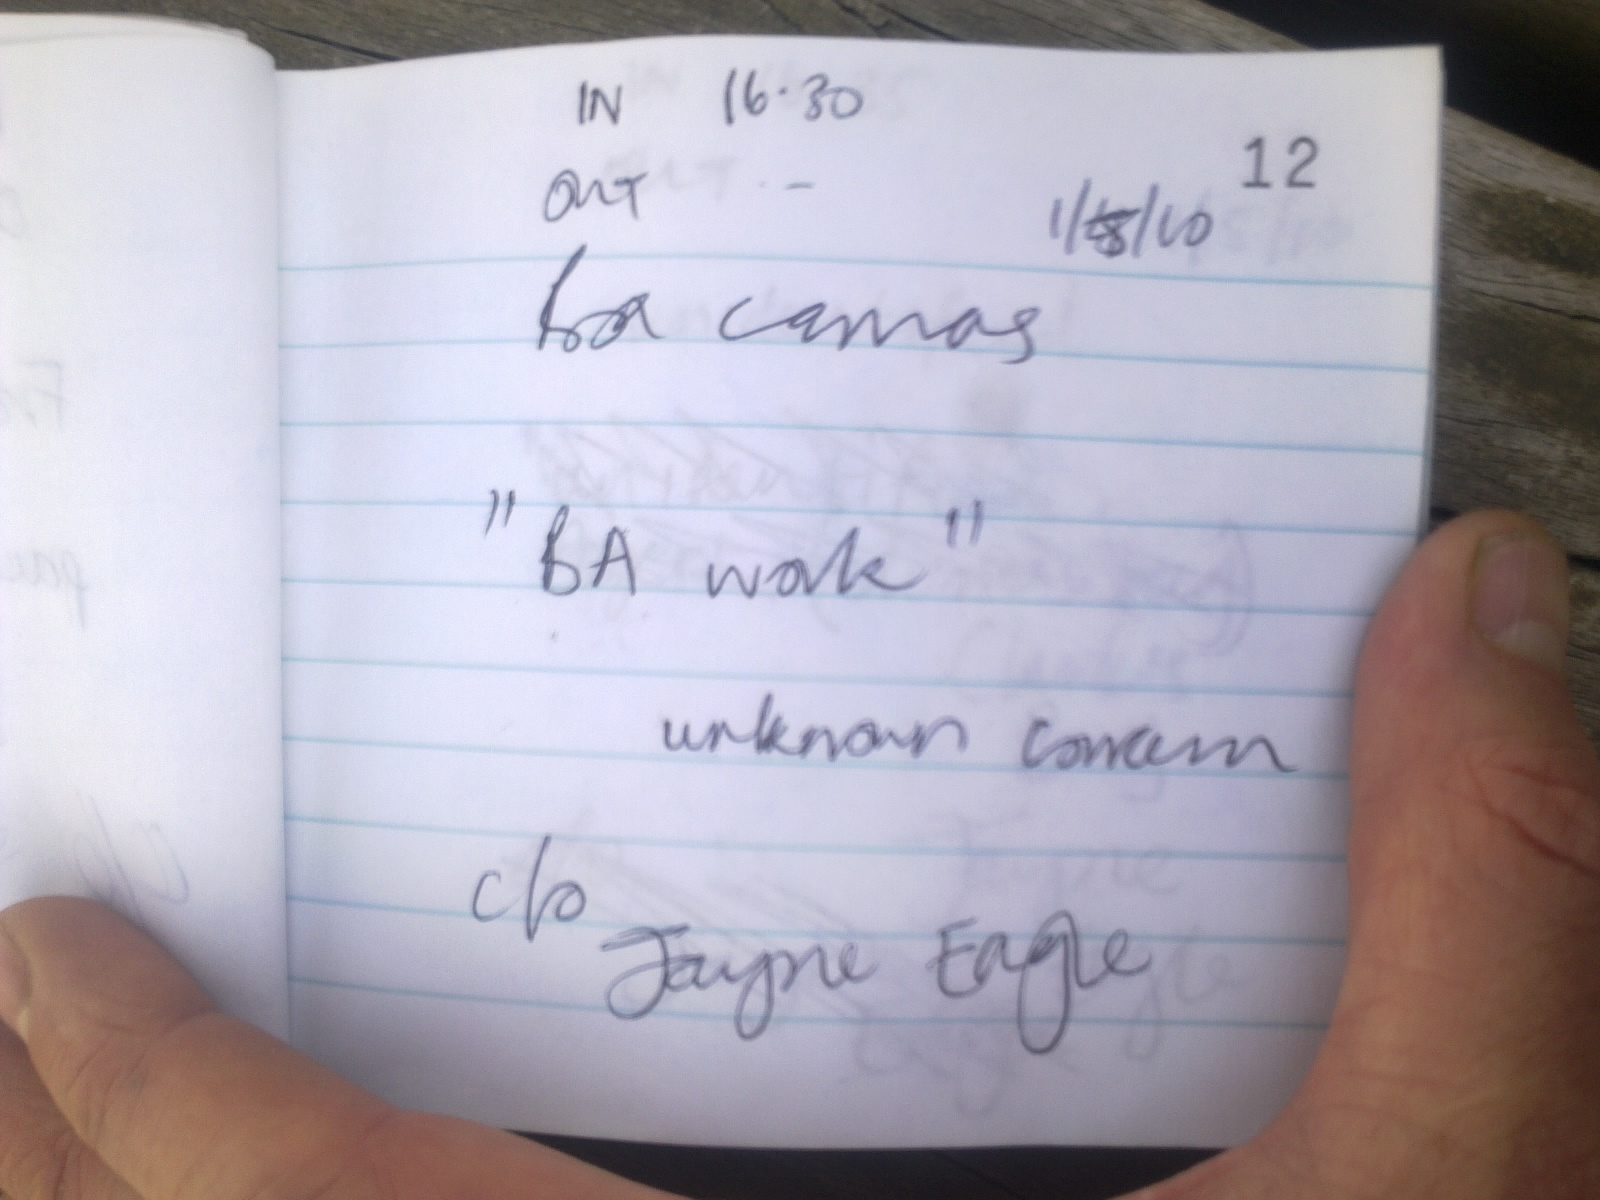 IN 16·30
OUT ·-
12
1/8/10
"BA work"
unknown concern
c/o
Jayne Eagle